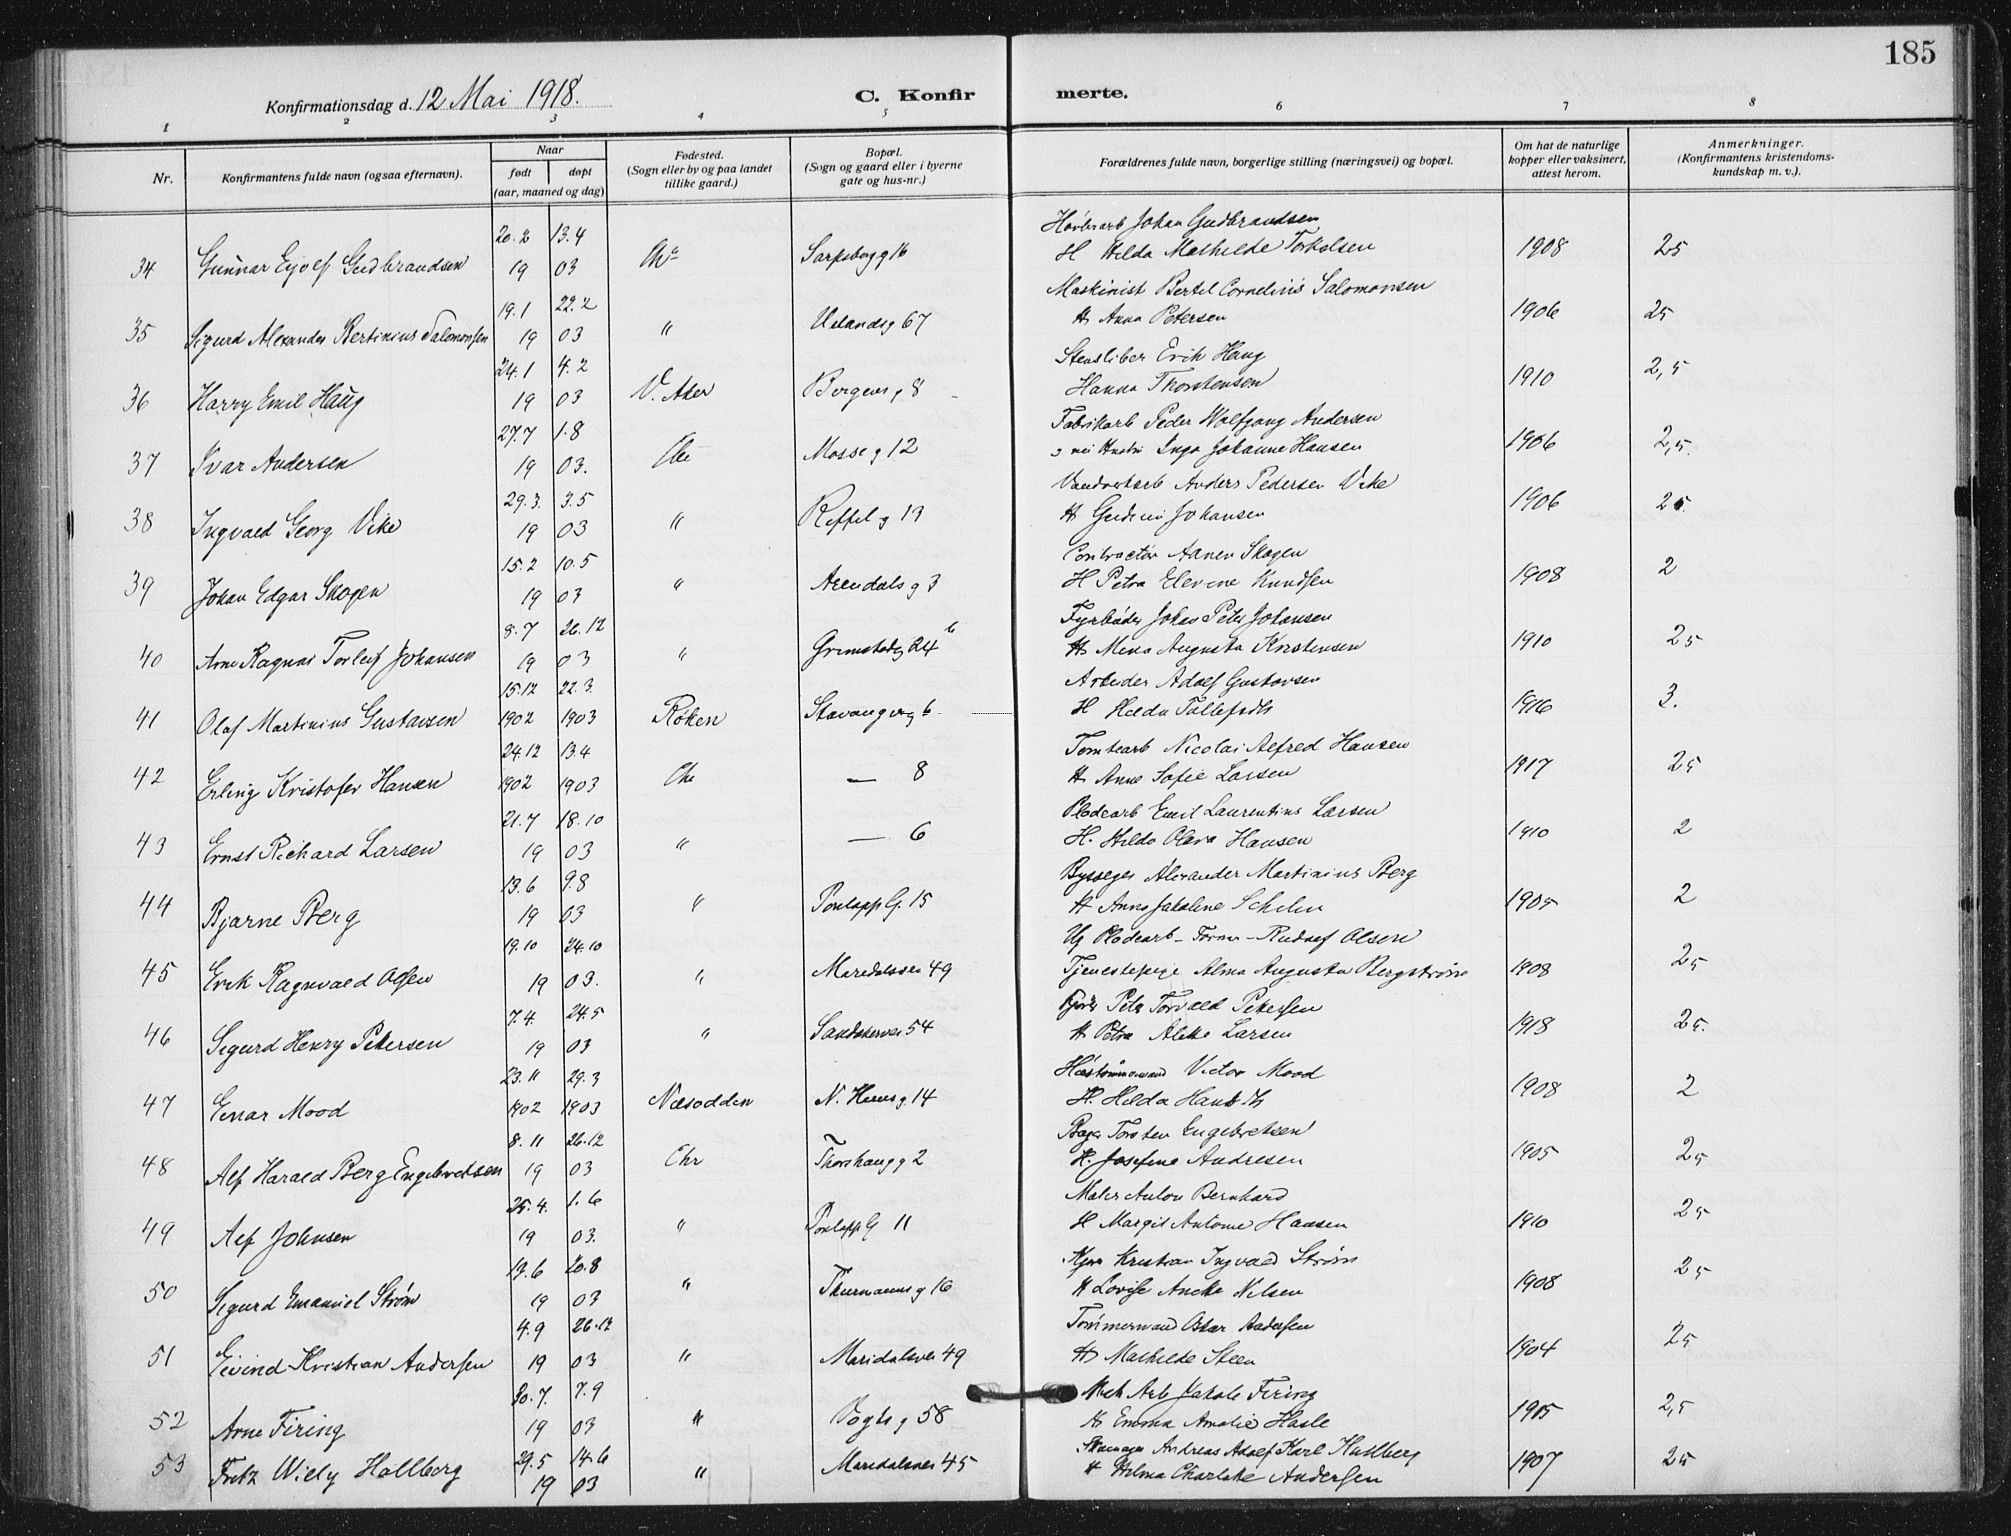 185
Konfirmationsdag d. 12 Mai 1918.
C. Konfirmerte.
1 2 3 4 5 6 7 8
Nr.
Konfirmantens fulde navn (ogsaa efternavn).
Naar
født døpt
(aar, maaned og dag)
Fødested.
(Sogn eller by og paa landet
tillike gaard.)
Bopæl.
(Sogn og gaard eller i byerne
gate og hus-nr.)
Forældrenes fulde navn, borgerlige stilling (næringsvei) og bopæl.
Om hat de naturlige
kopper eller vaksinert,
attest herom.
Anmerkninger.
(Konfirmantens kristendoms-
kundskap m. v.).
20.2 13.4 Johan Gudbrandsen
34 Gunnar Eyolf Gudbrandsen 19 03 Sarpsborgg 16 H Hilda Mathilde Torkelsen 1908 25
19.1 22.2 Maskinist Bertel Cornelius Salomonsen
35 Sigurd Alexander Bertinius Salomonsen 19 03 " Uelandsg 67 H Anna Petersen 1906 25
24.1 4.2 Erik Haug
36 Harry Emil Haug 19 03 V. Aker Bergensg 8 Hanna Thorstensen 1910 2,5
27.7 1.8 Fabrikarb Peder Wolfgang Andersen
37 Ivar Andersen 19 03. Mosseg 12 Inga Johanne Hansen 1906 2,5.
29.3. 3.5 Anders Pedersen Vike
38 Ingvald Georg Vike 19 03 " 19 H Johansen 1906 25.
15.2 10.5 Contractør Skogen
39 Johan Edgar Skogen 19 03 " Arendalsg 3 H Petra Elevine Knudsen 1908 2
8.7 26.12 Fyrbøder Johan Peter Johansen
40 Arne Ragnar Torleif Johansen 19 03 " Grimstadg 24 b H Mina Augusta Kristensen 1910 25
15.12 22.3. Arbeider Adolf Gustavsen
41 Olaf Martinius Gustavsen 1902 1903 Røken Stavangerg 6 H Hilda 1916 3.
24.12 13.4 Tomtearb Nicolai Alfred Hansen
42 Erling Kristofer Hansen 1902 1903 Chr — 8 H Anne Sofie Larsen 1917 25
21.7 18.10 Emil Laurentius Larsen
43 Ernst Richard Larsen 19 03 " — 6 H. Hilda Olava Hansen 1910 2
13.6 9.8 Alexander Martinius Berg
44 Bjarne Berg 19 03 " G. 15 H Anna Jakoline 1905 2
19.10 24.10 Rudolf Olsen
45 Erik Ragnvald Olsen 19 03. " Maridalsvei 49 Tjenestepige Alma Augusta Bergstrøm 1908 25
7.4. 24.5 Peter Torvald Petersen
46 Sigurd Henry Petersen 19 03 " Sandakervei 54 H Petra Larsen 1918 25.
23.11 29.3 Victor Mood
47 Einar Mood 1902 1903 Næsodden 14 H. Hilda 1908 2
8.11 26.12 Torsten Engebretsen
48 Alf Harald Berg Engebretsen 19 03 Chr Thorshaugg 2 H. Josefine Andresen 1905 25
25.4. 1.6 Maler Anton Bernhard
49 Alf Johnsen 19 03. " G 11 H Margit Antonie Hansen 1910 25
19.6 20.8 Kristian Ingvald Strøm
50 Sigurd Emanuel Strøm 19 03 " Thurmannsg 16 H Lovise Nilsen 1908 25
4.9 26.12 Tømmermand Oskar Andersen
51 Eivind Kristian Andersen 19 03 " Maridalsvei 49 H Mathilde Steen 1904 25
20.7. 7.9 Mek Arb Jakob Firing
52 Arne Firing 19 03 " Vogtsg 58 H Emma Amalie Hasle 1905 2,5
29.5 14.6 Andreas Adolf Karl Hallberg
53 Fritz Wiely Hallberg 19 03 " Maridalsvei 45 H Hilma Charlotte Andersen 1907 25